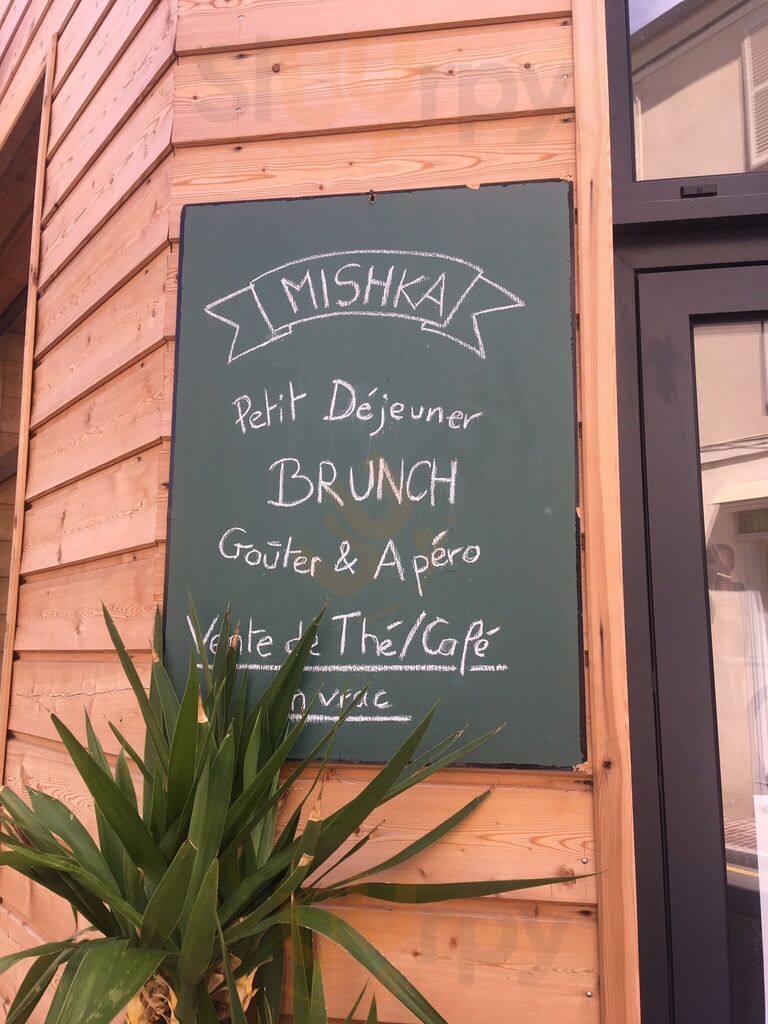 MISHKA
Petit Déjeuner
BRUNCH
Goûter & Apéro
Vente de Thé/Café
n vrac